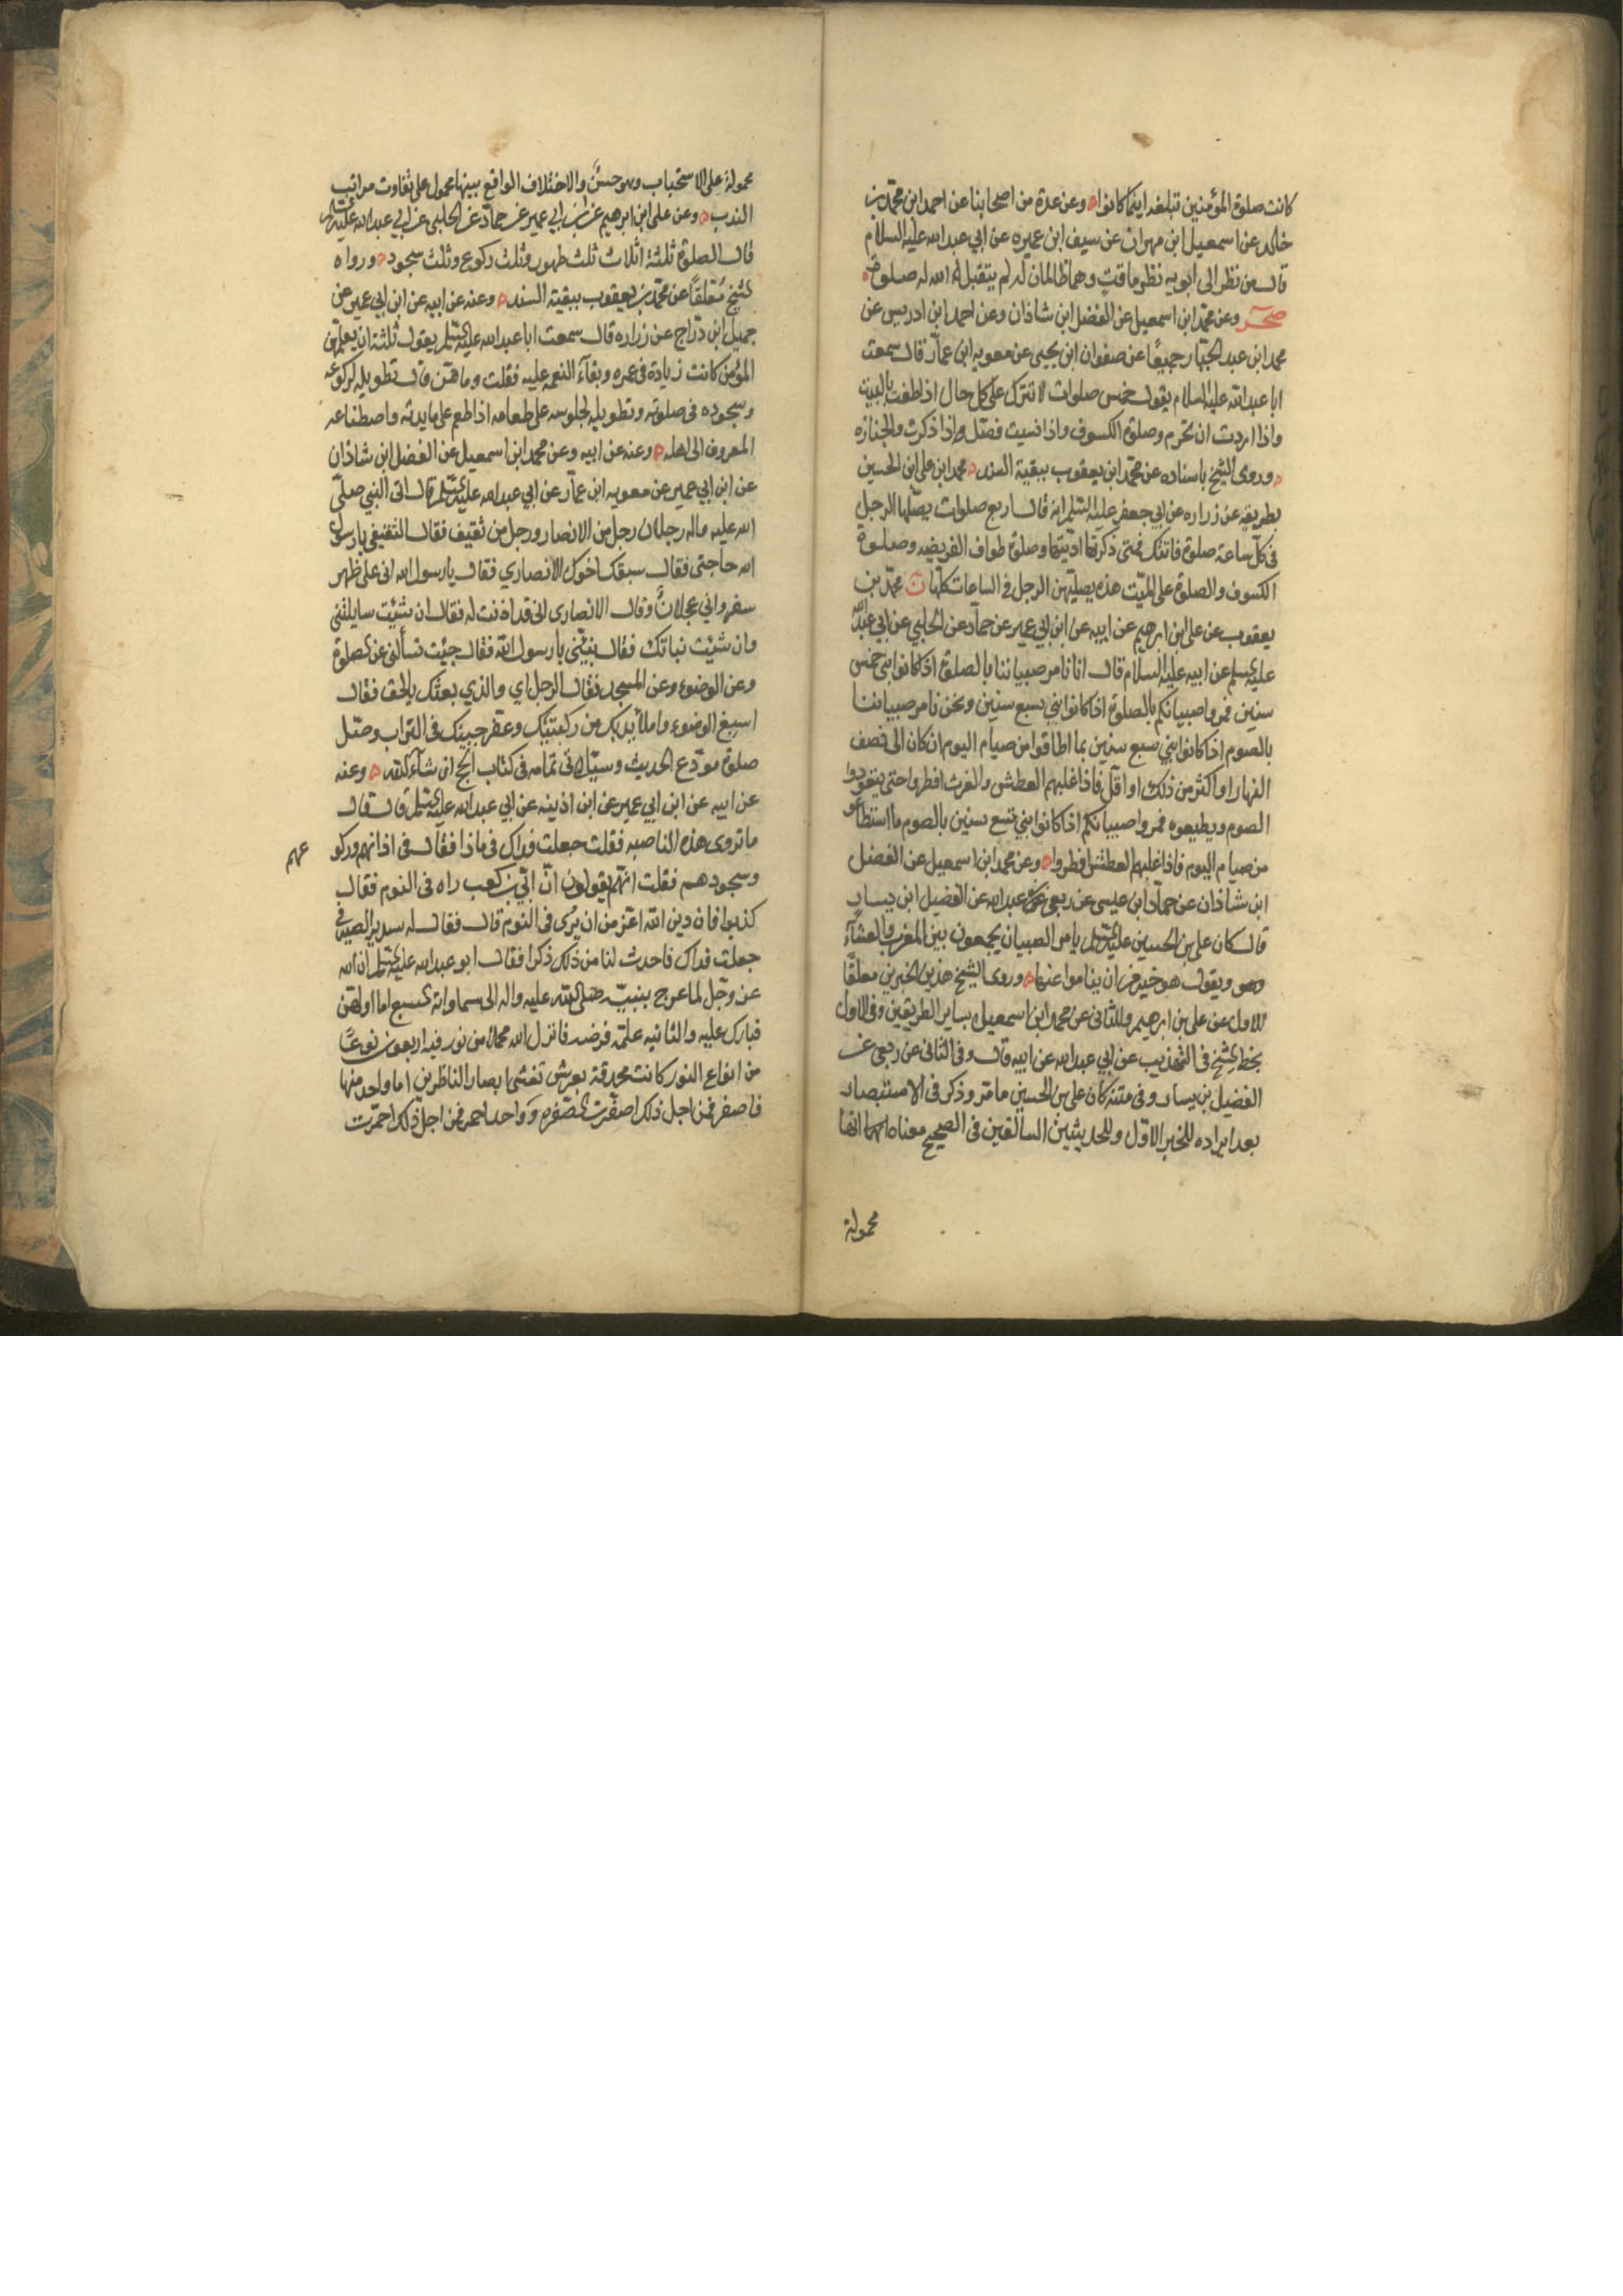 كانت صلوة المؤمنين تبلغه اينما كانوا وعن عدة من اصحابنا عن احمد ابن محمد بن
خالد عن اسمعيل ابن مهران عن سيف ابن عميره عن ابي عبد الله عليه السلام
قال من نظر الى ابويه نظر ماقت وهما ظالمان له لم يتقبل الله له صلوة
صحر وعن محمد ابن اسمعيل عن الفضل ابن شاذان وعن احمد ابن ادريس عن
محمد ابن عبد الجبار جميعا عن صفوان ابن يحيى عن معويه ابن عمار قال سمعت
ابا عبد الله عليه السلام يقول خمس صلوات لا تترك على كل حال اذا طفت بالبيت
واذا اردت ان تحرم وصلوة الكسوف واذا نسيت فصل اذا ذكرت والجنازه
وروى الشيخ باسناده عن محمد ابن يعقوب ببقية السند محمد ابن على ابن الحسين
بطريقه عن زراره عن ابي جعفر عليه السلم انه قال اربع صلوات يصليها الرجل
في كل ساعة صلوة فاتتك فمتى ذكرتها اديتها وصلوة طواف الفريضه وصلوة
الكسوف والصلوة على الميت هذه يصليهن الرجل في الساعات كلها ن محمد بن
يعقوب عن على ابن ابرهيم عن ابيه عن ابن ابي عمير عن حماد عن الحلبي عن ابي عبد الله
عليه السلم عن ابيه عليه السلام قال انا نامر صبياننا بالصلوة اذا كانوا بني خمس
سنين فمروا صبيانكم بالصلوة اذا كانوا بني سبع سنين ونحن نامر صبياننا
بالصوم اذا كانوا بني سبع سنين بما اطاقوا من صيام اليوم ان كان الى نصف
النهار او اكثر من ذلك او اقل فاذا غلبهم العطش والغرث افطروا حتى يتعودوا
الصوم ويطيقوه فمروا صبيانكم اذا كانوا بني تسع سنين بالصوم ما استطاعوا
من صيام اليوم فاذا غلبهم العطش افطروا وعن محمد ابن اسمعيل عن الفضل
ابن شاذان عن حماد ابن عيسى عن ربعي بن عبد الله عن الفضيل ابن يسار
قال كان على بن الحسين عليه السلم يامر الصبيان يجمعون بين المغرب والعشاء
ويقول هو خير من ان يناموا عنها وروى الشيخ هذين الخبرين معلقا
للاول عن على بن ابرهيم وللثانى عن محمد ابن اسمعيل بساير الطريقين وفى الاول
بخط الشيخ في التهذيب عن ابي عبد الله عن ابيه قال وفى الثانى عن ربعي عن
الفضيل بن يسار وفى متنه كان على بن الحسين ما مر وذكر فى الاستبصار
بعد ايراده للخبر الاول وللحديثين السالفين فى الصحيح معناه انها
محمولة
محمولة على الاستحباب وهو حسن والاختلاف الواقع بينها محمول على تفاوت مراتب
الندب وعن على ابن ابرهيم عن ابن ابي عمير عن حماد عن الحلبي عن ابي عبد الله عليه السلم
قال الصلوة ثلثة اثلاث ثلث طهور وثلث ركوع وثلث سجود ورواه
الشيخ معلقا عن محمد بن يعقوب ببقية السند وعنه عن ابيه عن ابن ابي عمير عن
جميل ابن دراج عن زراره قال سمعت ابا عبد الله عليه السلم يقول ثلثة ان يعلمهن
المؤمن كانت زيادة في عمره وبقاء النعمه عليه فقلت وما هن قال تطويله لركوعه
وسجوده فى صلوته وتطويله لجلوسه على طعامه اذا طعم على مايدته واصطناعه
المعروف الى اهله وعنه عن ابيه وعن محمد ابن اسمعيل عن الفضل ابن شاذان
عن ابن ابي عمير عن معويه ابن عمار عن ابي عبد الله عليه السلم قال اتى النبي صلى
الله عليه واله رجلان رجل من الانصار ورجل من ثقيف فقال الثقيفى يا رسول
الله حاجتى فقال سبقك اخوك الانصاري فقال يا رسول الله انى على ظهر
سفر وانى عجلان وقال الانصارى انى قد اذنت له فقال ان شئت سايلتنى
وان شئت نباتك فقال نبئنى يا رسول الله فقال جئت تسألنى عن الصلوة
وعن الوضوء وعن المسجد فقال الرجل اي والذي بعثك بالحق فقال
اسبغ الوضوء واملأ يديك من ركبتيك وعفر جبينك فى التراب وصل
صلوة مودع الحديث وسياتى تمامه فى كتاب الحج ان شاء الله وعنه
عن ابيه عن ابن ابي عمير عن ابن اذينه عن ابي عبد الله عليه السلم قال قال
ما تروى هذه الناصبه فقلت جعلت فداك فى ماذا فقال فى اذانهم وركو
عهم
وسجودهم فقلت انهم يقولون ان ابي بن كعب راه فى النوم فقال
كذبوا فان دين الله اعز من ان يرى فى النوم قال فقال له سدير الصيرفى
جعلت فداك فاحدث لنا من ذلك ذكرا فقال ابو عبد الله عليه السلم ان الله
عز وجل لما عرج بنبيه صلى الله عليه واله الى سماواته السبع اما اولهن
فبارك عليه والثانيه علمه فرضه فانزل الله محملا من نور فيه اربعون نوعا
من انواع النور كانت محدقة بعرش تغشى ابصار الناظرين اما واحد منها
فاصفر فمن اجل ذلك اصفرت الصفره وواحد احمر فمن اجل ذلك احمرت